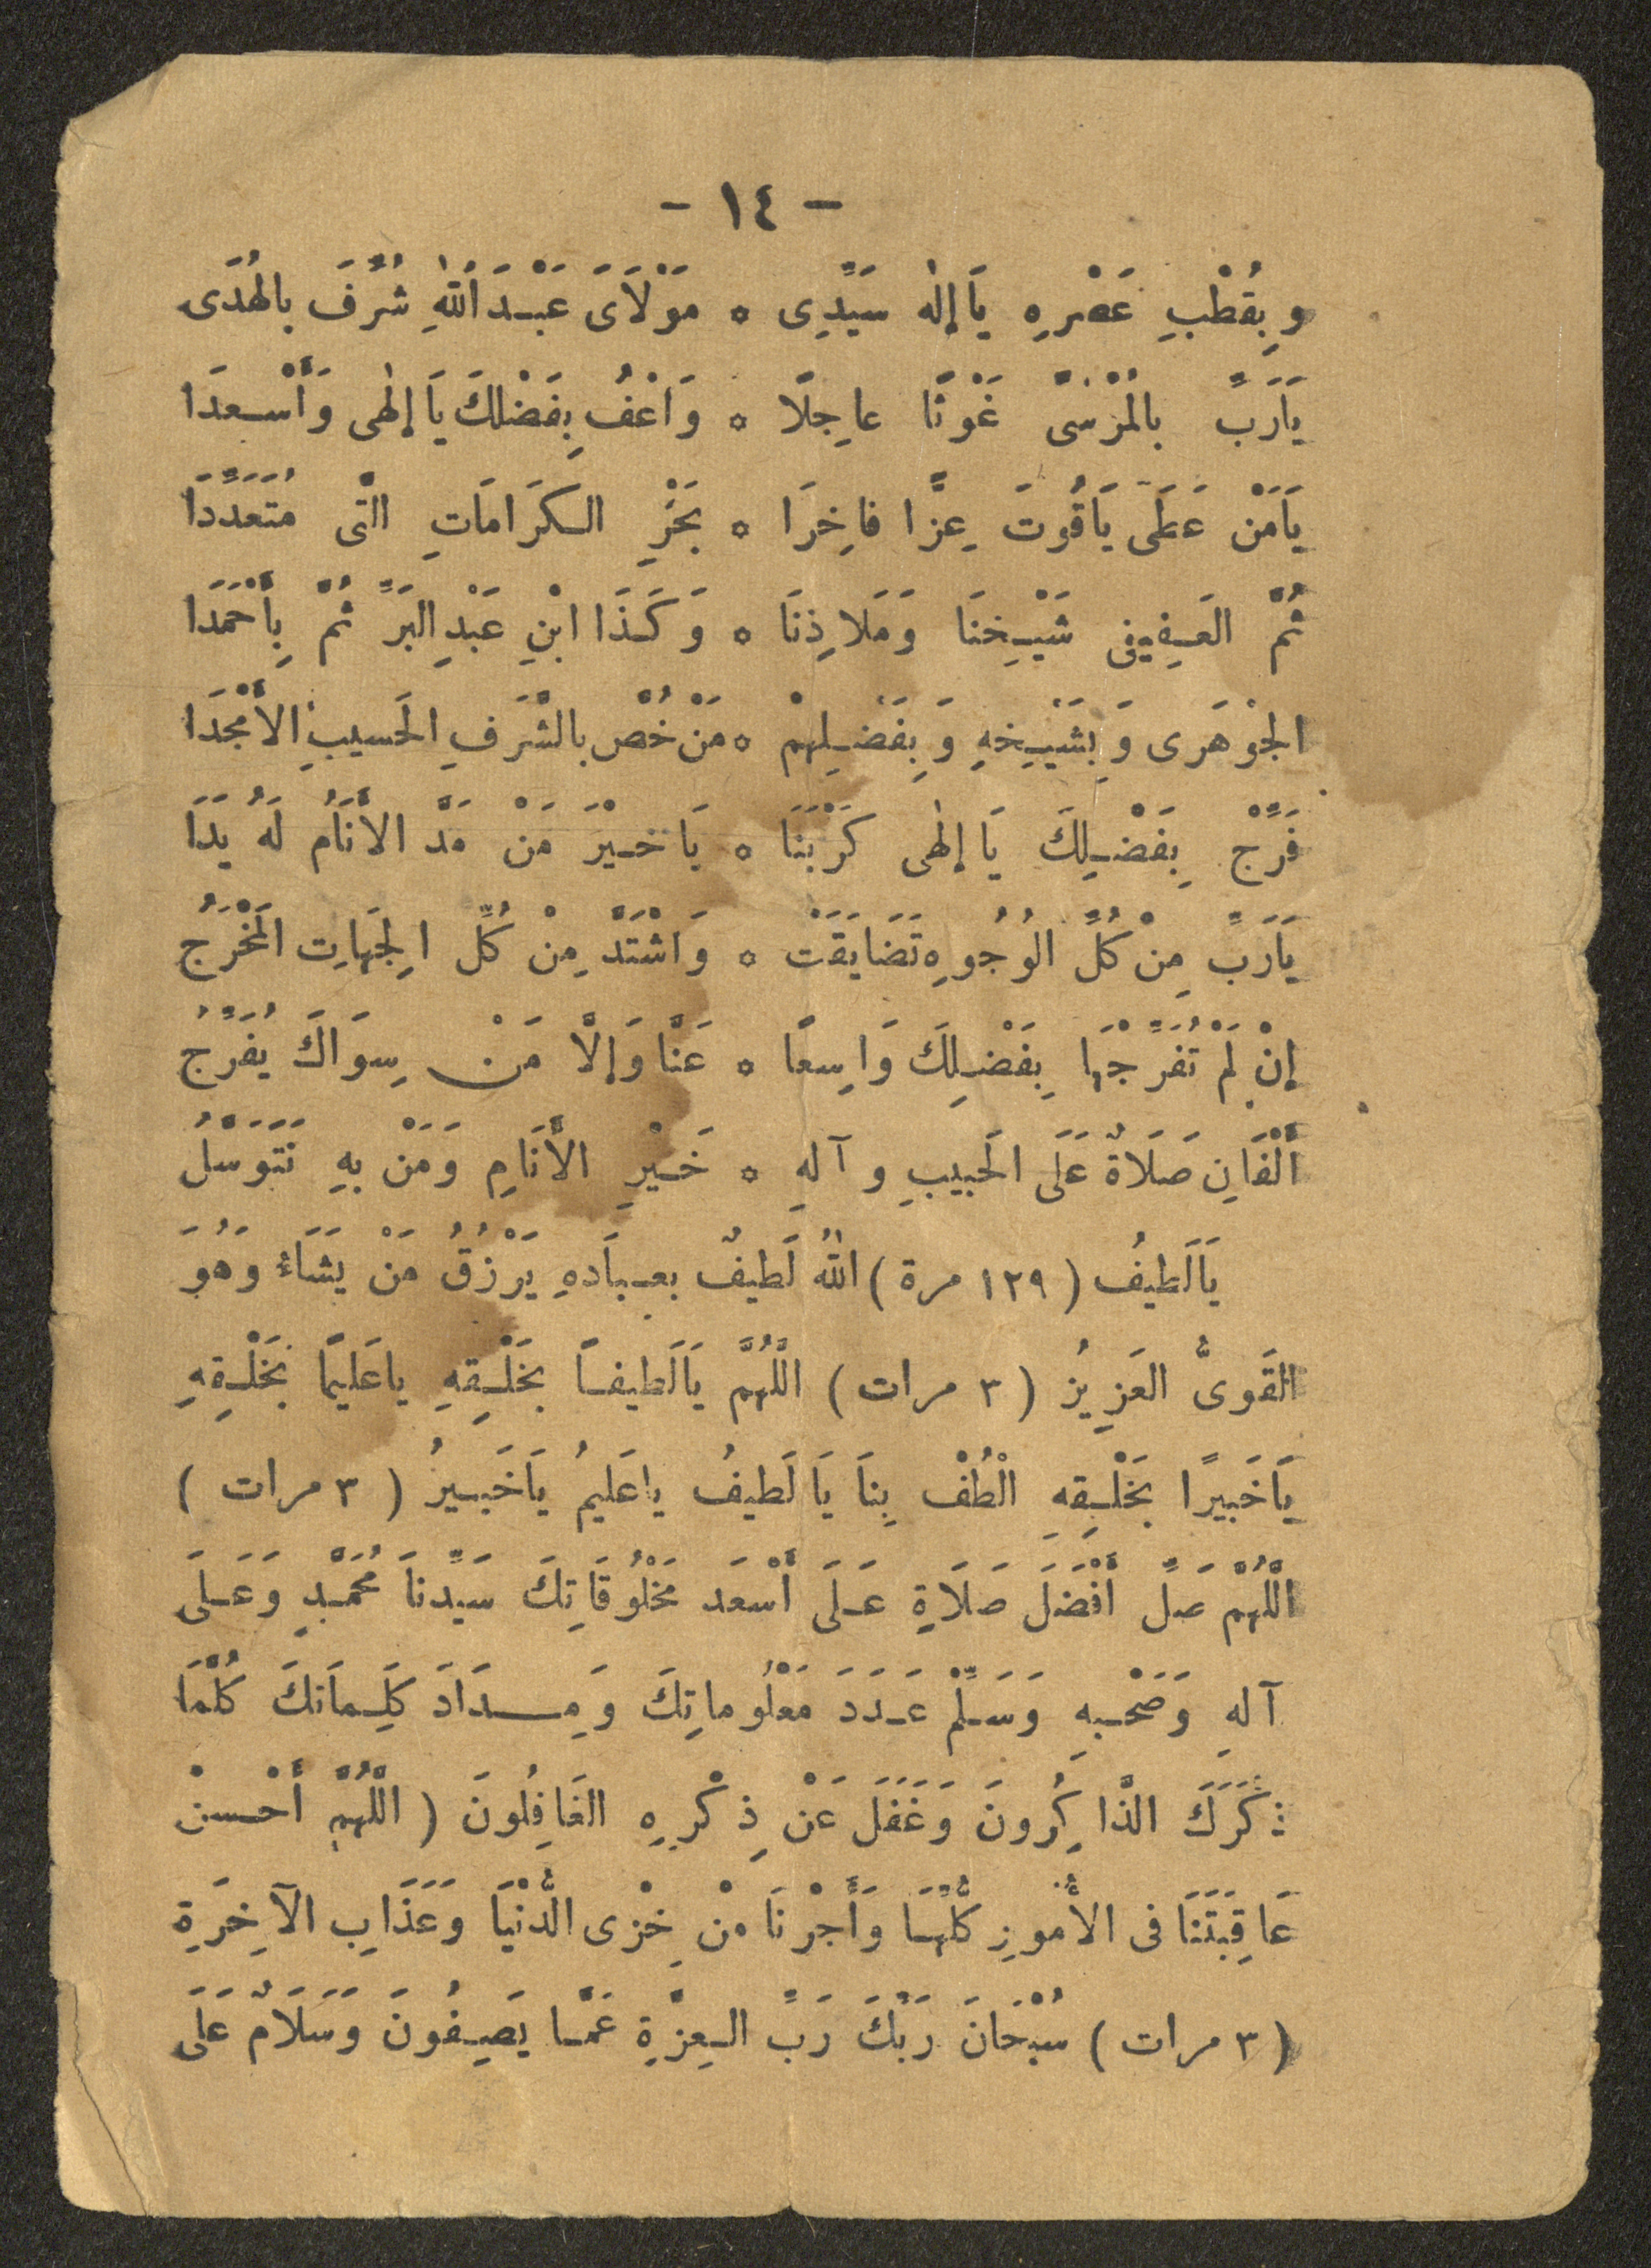 - ١٤ -
وبِقُطْبِ عَصْرِهِ يَا إِلٰه سَيِّدِى ٥ مَوْلَاىَ عَبْدَ اللهِ شُرِّفَ بالهُدَى
يَارَبِّ بالمُرْسِىِّ غَوْثًا عاجِلًا ٥ وَاعْفُ بِفَضْلكَ يَا إلٰهى وَأَسْعدَا
يَامَنْ عَطَى يَاقُوتَ عِزًّا فاخِرَا ٥ بَحْرِ الكَرَامَاتِ الَّتى مُتَعَدِّدَا
ثُمَّ العَفِيفِى شَيْخِنَا وَمَلَاذِنَا ٥ وَكَذَا ابْنِ عَبْدِ البَرِّ ثُمَّ بِأَحْمَدَا
الجْوْهَرى وَبِشَيْخِهِ وَبِفَضْلِهِمْ ٥ مَنْ خُصَّ بالشَّرَفِ الحَسيبِ الأَمْجَدَا
فَرِّجْ بِفَضْلِكَ يَا إلٰهى كَرْبَنَا ٥ يَا خَيْرَ مَنْ مَدَّ الأَنَامُ لَهُ يَدَا
يَارَبِّ مِنْ كُلِّ الوُجُوهِ تَضَايَقَتْ ٥ وَاشْتَدَّ مِنْ كُلِّ الجِهَاتِ المَخْرَجُ
إنْ لَمْ تُفَرِّجْهَا بِفَضْلِكَ وَاسِعًا ٥ عَنَّا وَإلَّا مَنْ سِوَاكَ يُفَرِّجُ
أَلْفَانِ صَلَاةٌ عَلَى الحَبيبِ وآلهِ ٥ خَيْرِ الأَنَامِ وَمَنْ بهِ نَتَوَسَّلُ
يَالَطيفُ (١٢٩ مرة) اللهُ لَطيفٌ بعبَادهِ يَرْزُقُ مَنْ يَشَاءُ وَهُوَ
القَوىُّ العَزيزُ (٣ مرات) اللَّهُمَّ يَالَطيفًا بخَلْقِهِ ياعَليمًا بخَلْقِهِ
يَاخَبيرًا بخَلْقِهِ الْطُفْ بِنَا يَا لَطيفُ ياعَليمُ يَاخَبيرُ (٣ مرات)
اللَّهُمَّ صَلِّ أَفْضَلَ صَلَاةٍ عَلَى أَسْعَد مَخْلُوقَاتِكَ سَيِّدنَا مُحَمَّدٍ وَعَلَى
آلهِ وَصَحْبهِ وَسَلِّمْ عَدَدَ مَعْلُوماتِكَ وَمِدَادَ كَلِمَاتكَ كُلَّمَا
ذَكَرَكَ الذَّاكِرُونَ وَغَفَلَ عَنْ ذِكْرِهِ الغَافِلُونَ (اللَّهُمَّ أَحْسنْ
عَاقِبَتَنَا فى الأُمُورِ كُلِّهَا وَأَجِرْنَا مِنْ خِزْى الدُّنْيَا وَعَذَابِ الآخِرَةِ
(٣ مرات) سُبْحَانَ رَبِّكَ رَبِّ العِزَّةِ عَمَّا يَصِفُونَ وَسَلَامٌ عَلَى